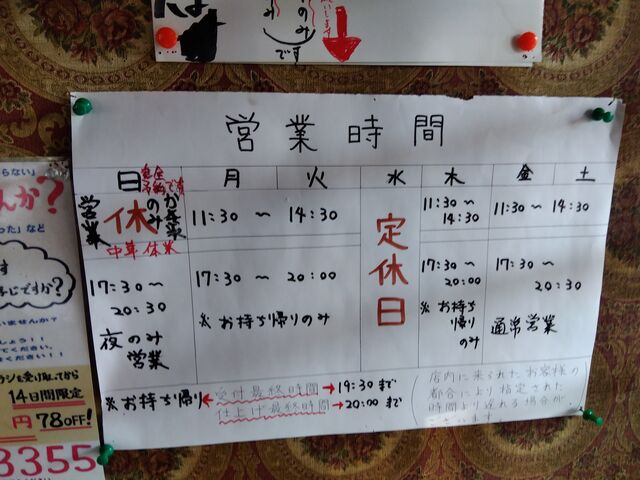 のみ
です
営業時間
日 月 火 水 木 金 土
完全
予約です
営業
休
のみ
が
営業
中華 休業
11:30 〜 14:30
定休日
11:30 〜
14:30
11:30 〜 14:30
17:30 〜
20:30
夜のみ
営業
17:30 〜 20:00
※お持ち帰りのみ
17:30 〜
20:00
※お持ち
帰り
のみ
17:30 〜
20:30
通常営業
※お持ち帰り
受付最終時間→19:30まで
仕上げ最終時間→20:00まで
店内に来られたお客様の
都合により指定された
時間より遅れる場合が
ございます
らない」
んか?
った」など
す
じですか?
いませんか?
しょう!!
てください。
ください!!
ラシを受け取ってから
14日間限定
円78OFF!
3355